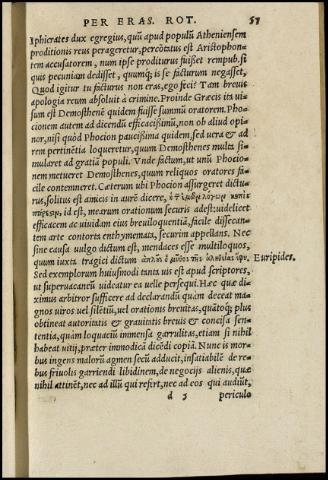 PER ERAS. ROT. 57
Iphicrates dux egregius, quũ apud populũ Atheniensem
proditionis reus perageretur, percõtatus est Aristophon-
tem accusatorem, num ipse proditurus fuißet rempub. si
quis pecuniam dedißet, quumq; is se facturum negasset,
Quod igitur tu facturus non eras, ego feci? Tam brevis
apologia reum absoluit à crimine. Proinde Græcis ita ui-
sum est Demosthenē quidem fuisse summũ oratorem. Pho-
cionem autem ad dicendũ efficacißimũ, non ob aliud opi-
nor, nisi quòd Phocion paucißima quidem, sed uera & ad
rem pertinētia loqueretur, quum Demosthenes multa si-
mularet ad gratiã populi. Vnde factum, ut unũ Phocio-
nem metueret Demosthenes, quum reliquos oratores fa-
cile contemneret. Cæterum ubi Phocion assurgeret dictu-
rus, solitus est amicis in aurē dicere,
id est, mearum orationum securis adest: uidelicet
efficacem ac uiuidam eius breuiloquentiã, facile dissecan-
tem arte contorta enthymemata, securim appellans. Nec
sine causa uulgo dictum est, mendaces esse multiloquos,
quum iuxta tragici dictum ἁπλοῦς ὁ μῦθος τῆς ἀληθείας ἔφυ. Euripides.
Sed exemplorum huiusmodi tanta uis est apud scriptores,
ut superuacaneũ uideatur ea uelle persequi. Hæc quæ di-
ximus arbitror sufficere ad declarandũ quàm deceat ma-
gnos uiros uel silētiũ, uel orationis breuitas, quãtoq; plus
obtineat autoritatis & grauitatis breuis & concisa sen-
tentia, quàm loquaciũ immensa garrulitas, etiam si nihil
habeat uitij, præter immodicã dicēdi copiã. Nunc is mor-
bus ingens malorũ agmen secũ adducit, insatiabilē de re-
bus friuolis garriendi libidinem, de negocijs alienis, quæ
nihil attinēt, nec ad illũ qui refert, nec ad eos qui audiũt,
d 5 periculo